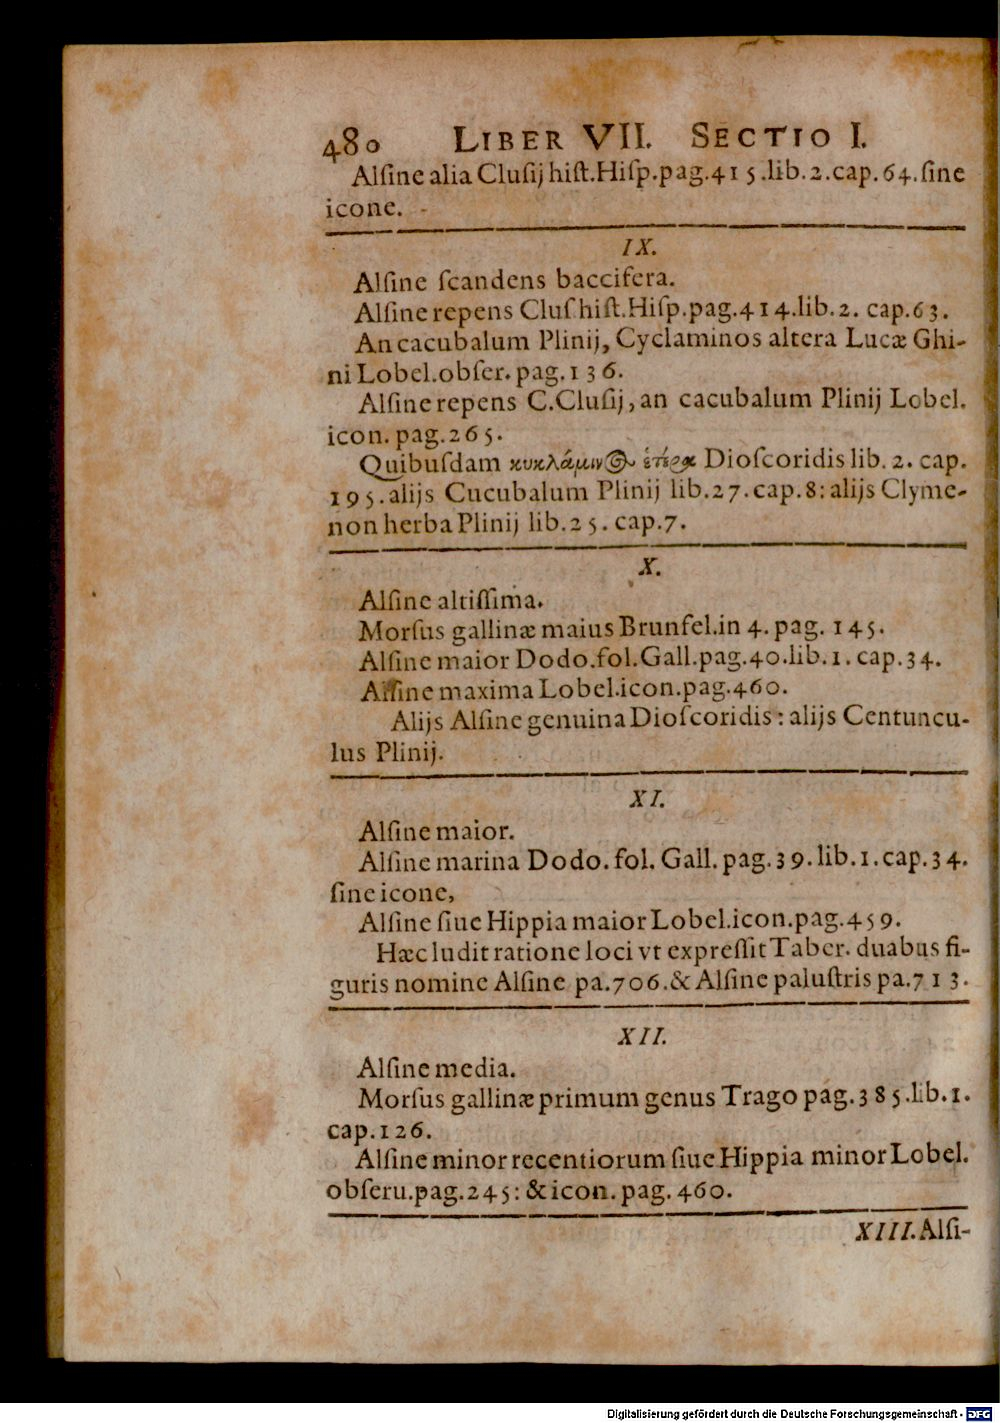 480 LIBER VII. SECTIO I.
Alſine alia Cluſij hiſt.Hiſp.pag.415.lib.2.cap.64.ſine
icone.
IX.
Alſine ſcandens baccifera.
Alſine repens Cluſ hiſt.Hiſp.pag.414.lib.2. cap.63.
An cacubalum Plinij, Cyclaminos altera Lucæ Ghi-
ni Lobel.obſer.pag.136.
Alſine repens C.Cluſij, an cacubalum Plinij Lobel.
icon. pag.265.
Quibuſdam κυκλάμινος ἑτέρα Dioſcoridis lib. 2. cap.
195.alijs Cucubalum Plinij lib.27.cap.8: alijs Clyme-
non herba Plinij lib.25. cap.7.
X.
Alſine altiſſima.
Morſus gallinæ maius Brunfel.in 4. pag. 145.
Alſine maior Dodo.fol.Gall.pag.40.lib.1. cap.34.
Alſine maxima Lobel.icon.pag.460.
Alijs Alſine genuina Dioſcoridis: alijs Centuncu-
lus Plinij.
XI.
Alſine maior.
Alſine marina Dodo. fol. Gall. pag.39.lib.1.cap.34.
ſine icone,
Alſine ſiue Hippia maior Lobel.icon.pag.459.
Hæc ludit ratione loci vt expreſſit Taber. duabus fi-
guris nomine Alſine pa.706.& Alſine paluſtris pa.713.
XII.
Alſine media.
Morſus gallinæ primum genus Trago pag.385.lib.1.
cap.126.
Alſine minor recentiorum ſiue Hippia minor Lobel.
obſeru.pag.245: & icon. pag. 460.
XIII. Alſi-
Digitalisierung gefördert durch die Deutsche Forschungsgemeinschaft - DFG